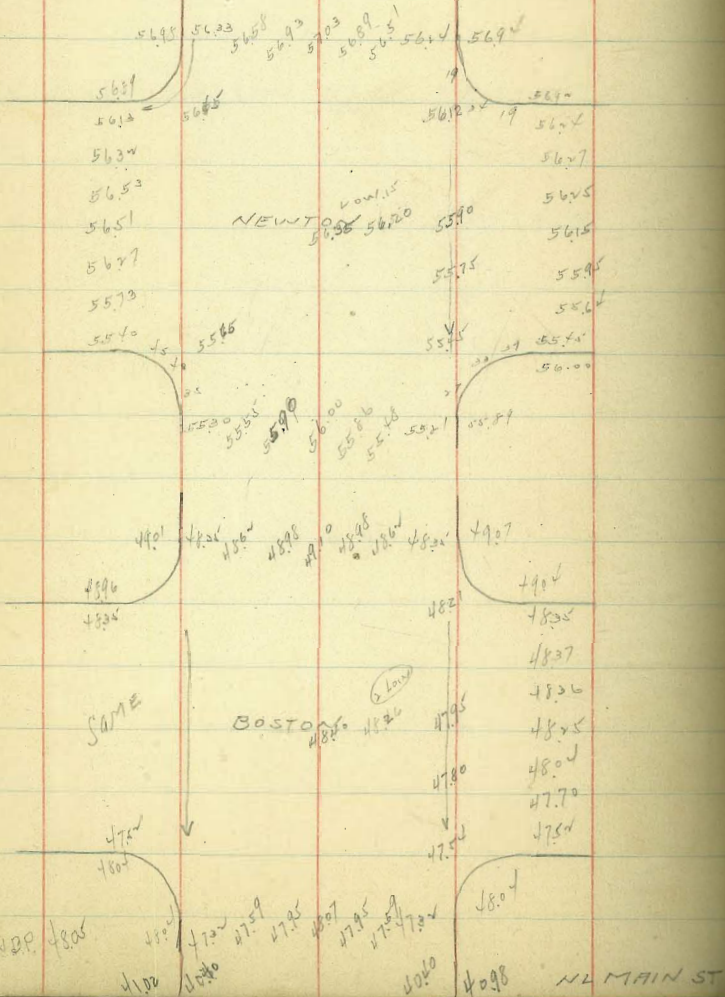 56.98 56.33 56.58 56.93 57.03 56.89 56.51 56.24 56.92
19
56.89 56.92
56.13 56.12 19 56.24
56.32 56.27
56.53 56.25
NEWTON 56.35 56.20 55.90
56.51 56.15
56.27 55.75 55.95
55.73 55.64
55.40 55.45 55.45 55.45
56.00
55.30 55.55 55.90 56.00 55.86 55.48 55.21 55.89
49.01 48.35 48.62 48.98 49.10 48.98 48.62 48.35 49.07
48.96 48.21 49.04
48.35 48.35
48.37
48.36
SAME BOSTON 48.40 48.26 47.95 48.25
48.04
47.80 47.70
47.52 47.54 47.52
48.04 48.04
48.05 48.04 47.32 47.59 47.95 48.07 47.95 47.59 47.32
41.02 40.40 40.40 40.98 NL MAIN ST